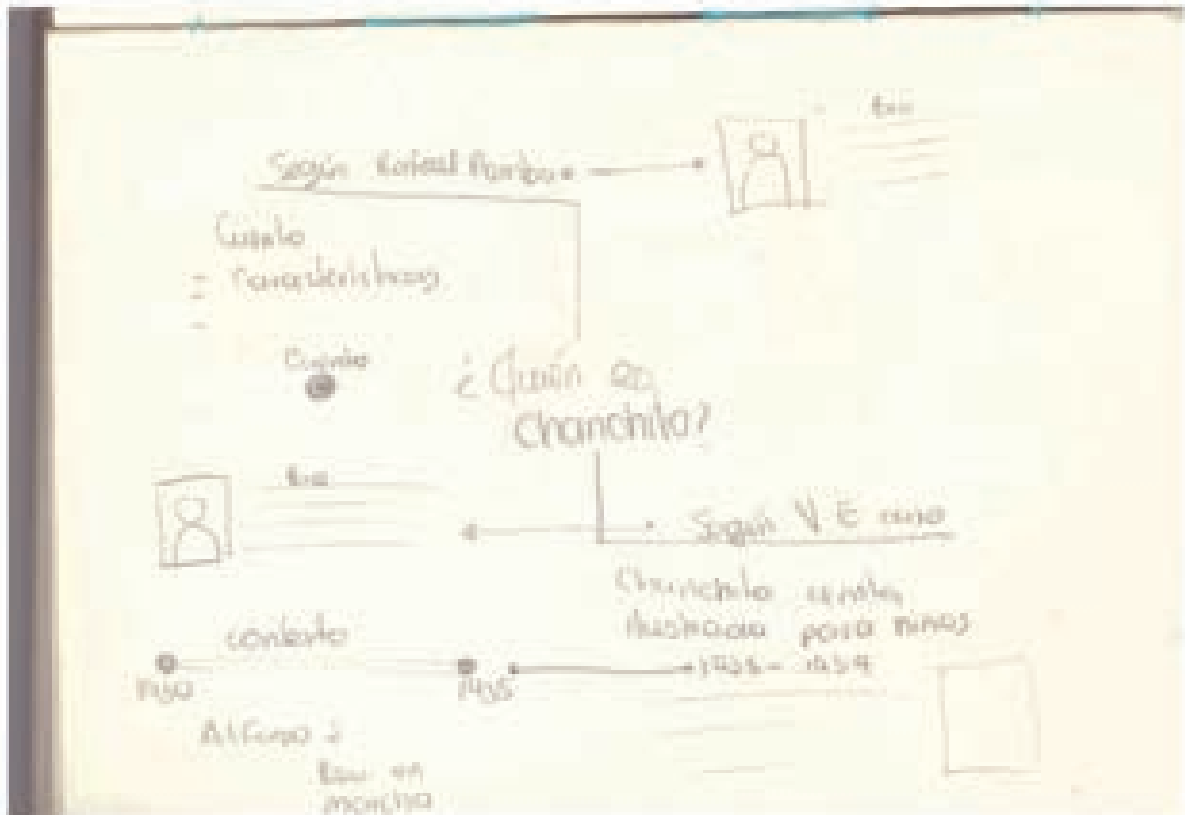 Bio
Según Rafael Pombo
Cuento
- Características
Cuento
¿Quién es
Chanchito?
Bio
Según V. E. Caro
Chanchito revista
ilustrada para niños
contexto
1930
1935
Alfonso
en
marcha